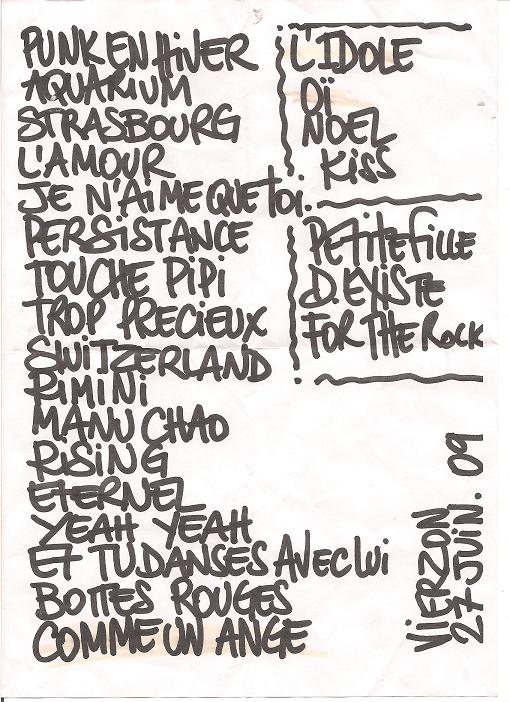 PUNK EN HIVER
AQUARIUM
STRASBOURG
L'AMOUR
JE N'AIME QUE toi.
PERSISTANCE
TOUCHE PIPI
TROP PRECIEUX
SWITZERLAND
RIMINI
MANU CHAO
RISING
ETERNEL
YEAH YEAH
ET TU DANSES AVEC lui
BOTTES ROUGES
COMME UN ANGE
L'IDOLE
OÏ
NOEL
KISS
PETITE FILLE
D. EXISTE
FOR THE ROCK
VIERZON
27 JUIN. 09